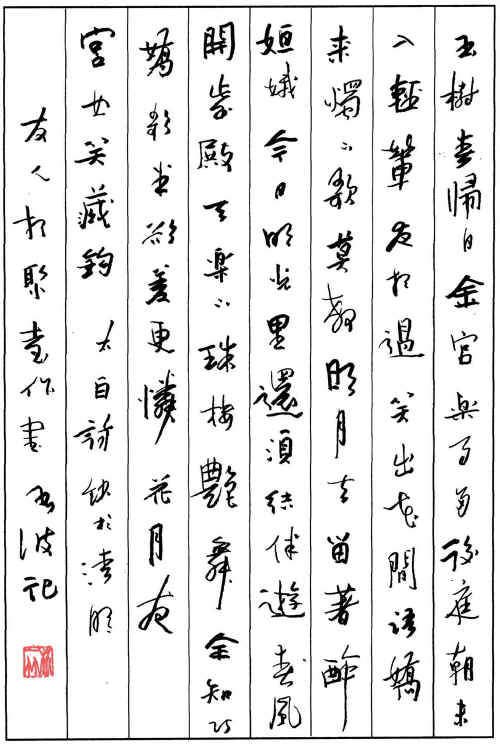 玉樹春歸日金宮樂事多後庭朝未
入輕輦夜相過笑出花間語嬌
来燭下歌莫教明月去留著醉
姮娥今日明光里還須結伴遊春風
開紫殿天楽下珠樓艷舞全知巧
嬌歌半欲羞更憐花月夜
宮女笑藏鉤 太白詩鈔於清明
友人相聚作書 波記